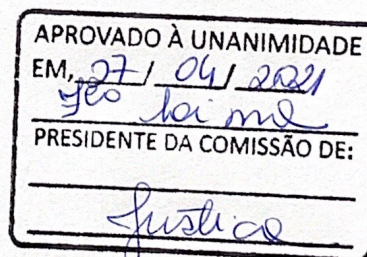 APROVADO À UNANIMIDADE
EM, 27 / 04 / 2021
PRESIDENTE DA COMISSÃO DE:
Justiça